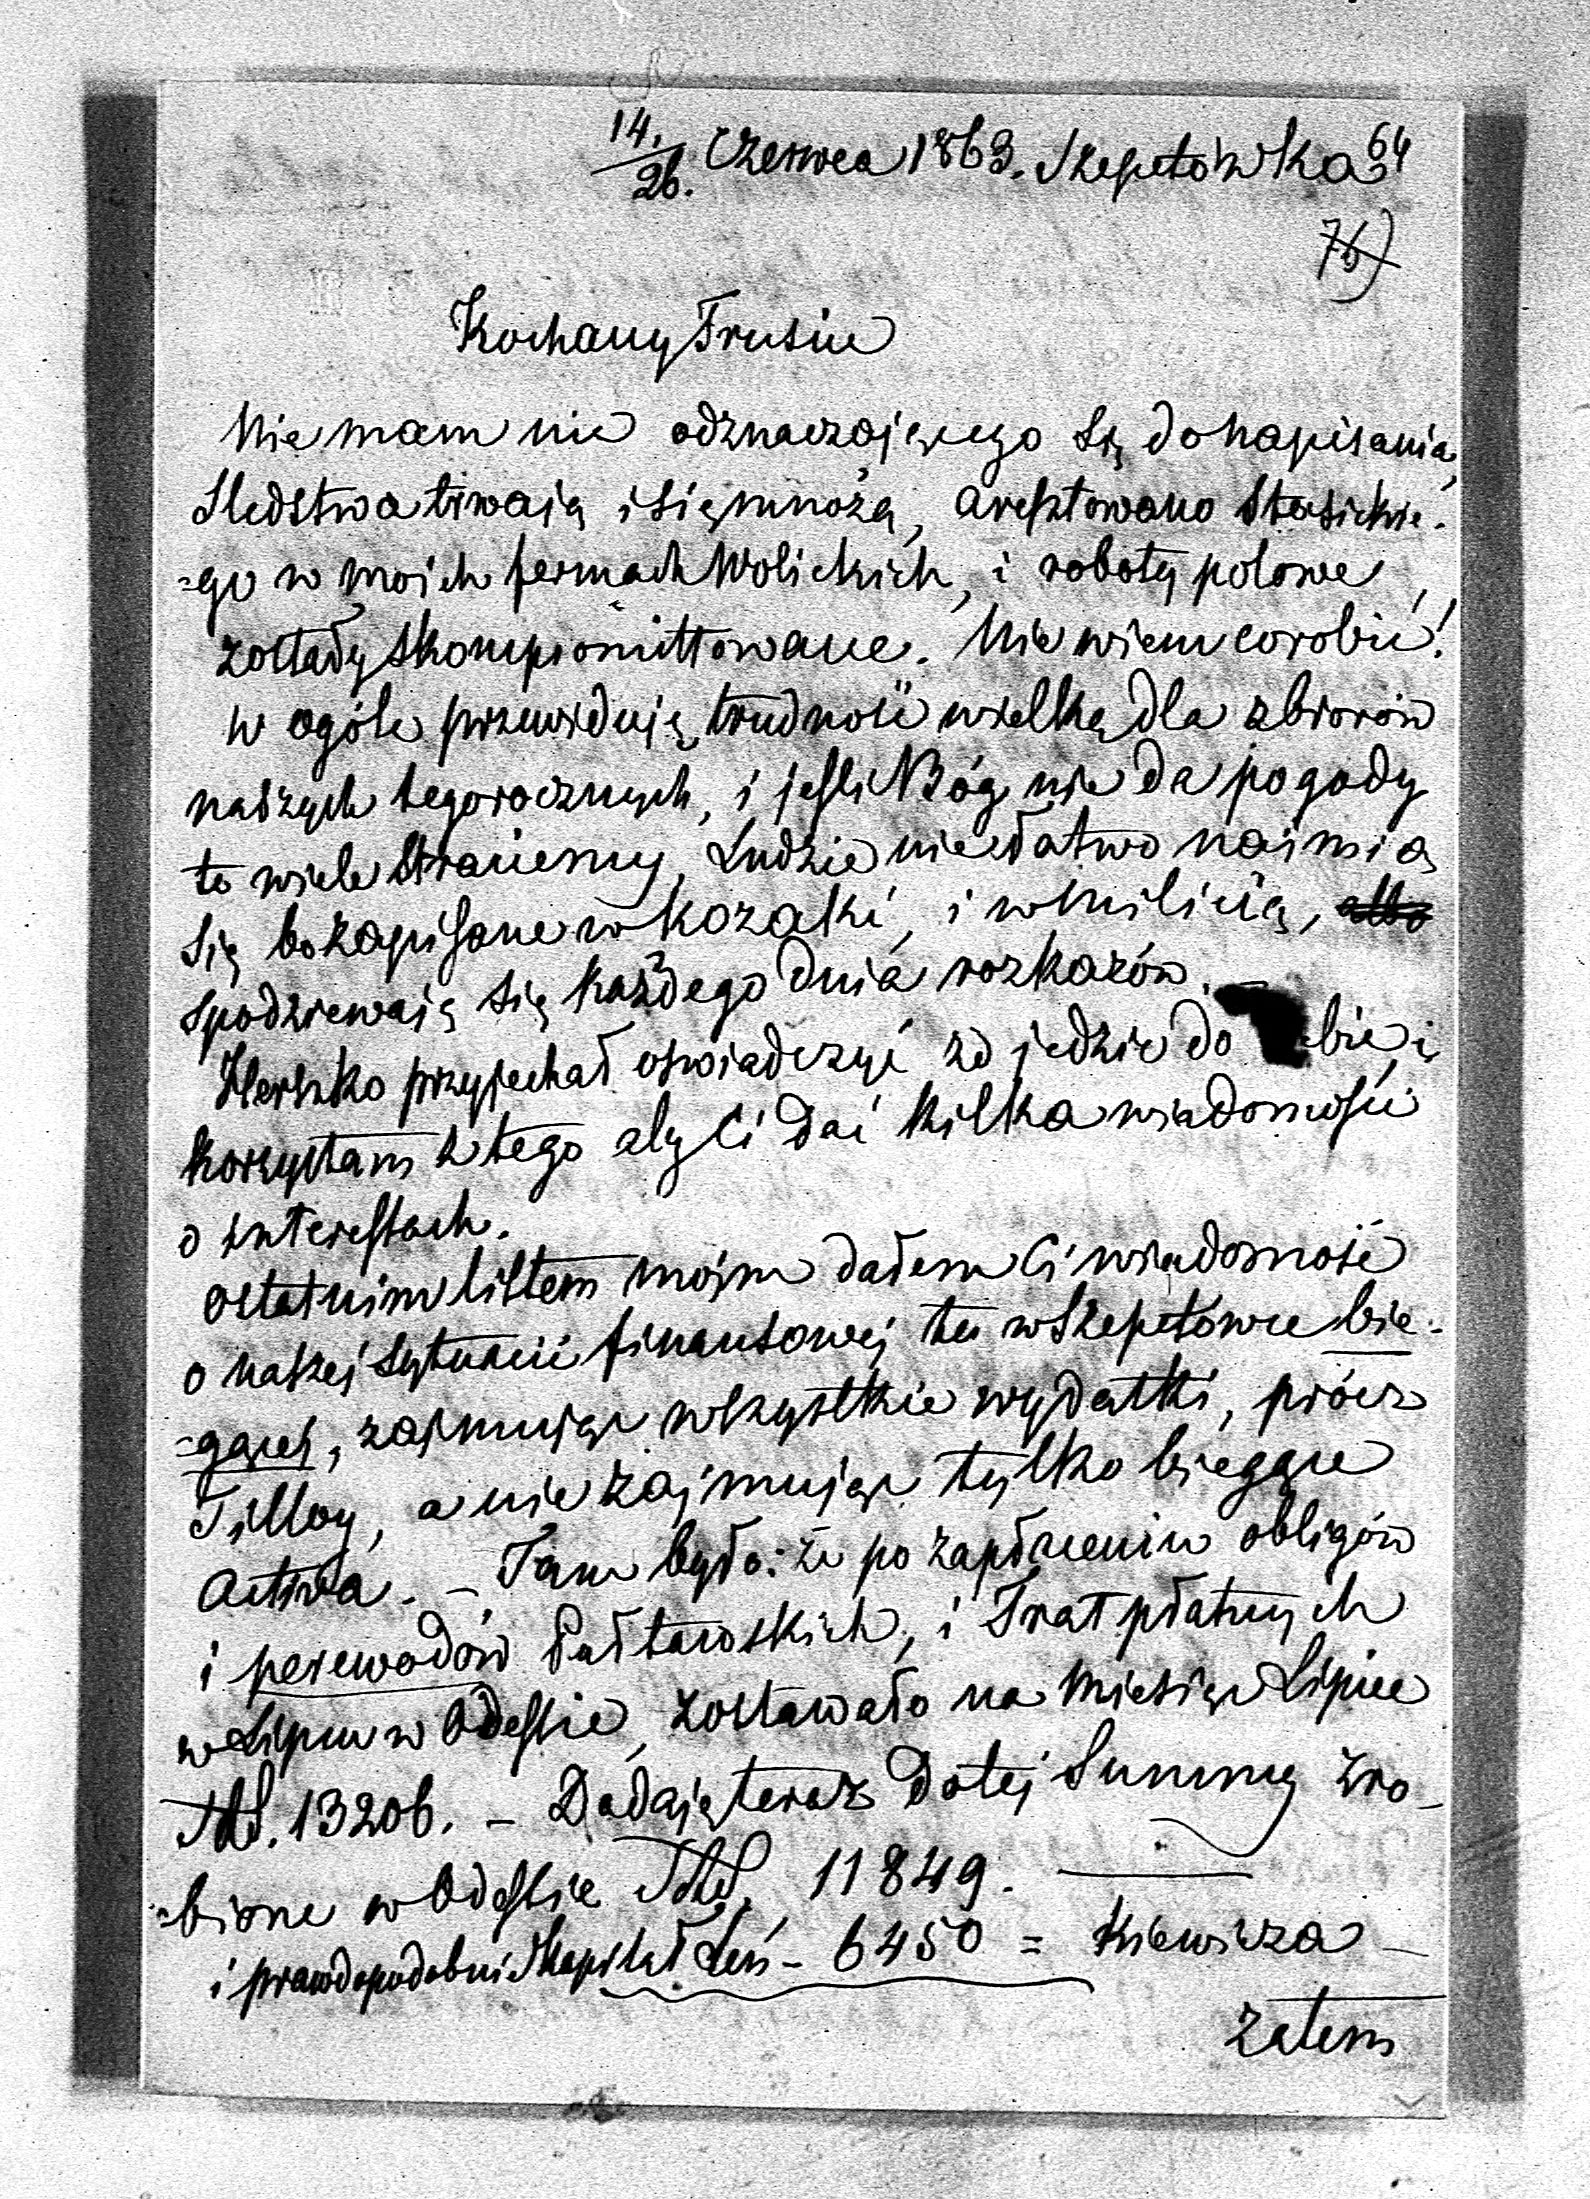 14./26. Czerwca 1863. Szepetówka 64
76)
Kochany Trusiu
Nie mam nic odznaczającego się do napisania,
Sledstwa trwają i się mnożą, aresztowano Stasickie-
=go w moich fermach Wolickich, i roboty polowe,
zostały skompromittowane. Nie wiem co robić!
W ogóle przewiduję trudność wielką dla zbiorów
naszych tegorocznych, i jesli Bóg nie da pogody
to wiele stracimy, Ludzie nie łatwo najmią
się bo zapisane w kozaki, i w milicią,
spodziewają się każdego dnia rozkazów. –
Herszko przyjechał oswiadczyć że jedzie do bie, i
korzystam z tego aby Ci dać kilka wiadomości
o interessach.
Ostatnim listem moim dałem Ci wiadomość
o naszej sytuacii finansowej tu w Szepetówce bie-
=gącej, zajmując wszystkie wydatki, prócz
Tilloy, a nie zajmując tylko biegące
Activa. – Tam było: że po zapłaceniu obligów
i perewodów Połtawskich, i Trat płatnych
w Lipcu w Odessie, zostawało na miesiąc Lipiec
Rbs. 13206. – Dodaję teraz do tej Summy zro-
=bione w Odessie Rbs. 11849.
i prawdopodobnie Kapitał Leś – 6450 = Kiewicza –
zatem